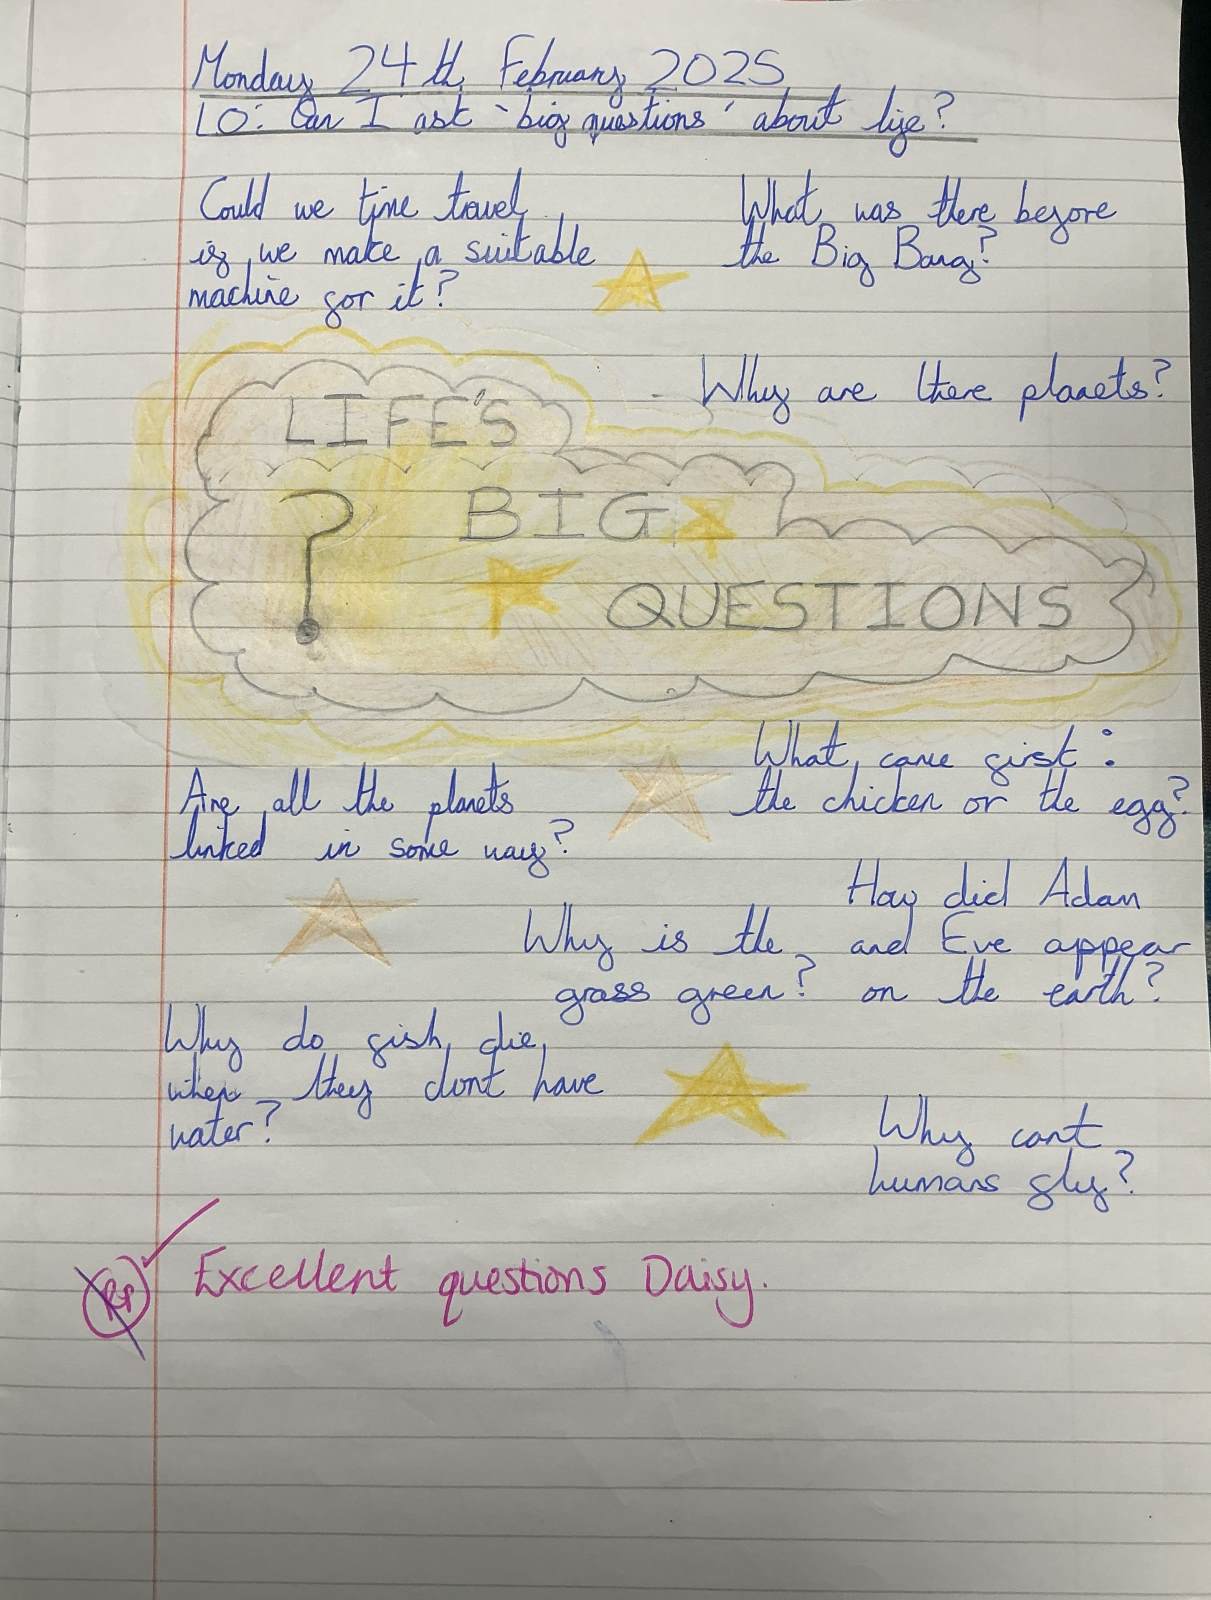 Monday 24th February 2025
LO: Can I ask 'big questions' about life?
Could we time travel
if we make a suitable
machine for it?
What was there before
the Big Bang?
Why are there planets?
LIFE'S
? BIG
QUESTIONS
What came first:
the chicken or the egg?
Are all the planets
linked in some way?
How did Adam
and Eve appear
on the earth?
Why is the
grass green?
Why do fish die,
when they dont have
water?
Why cant
humans fly?
RP
Excellent questions Daisy.